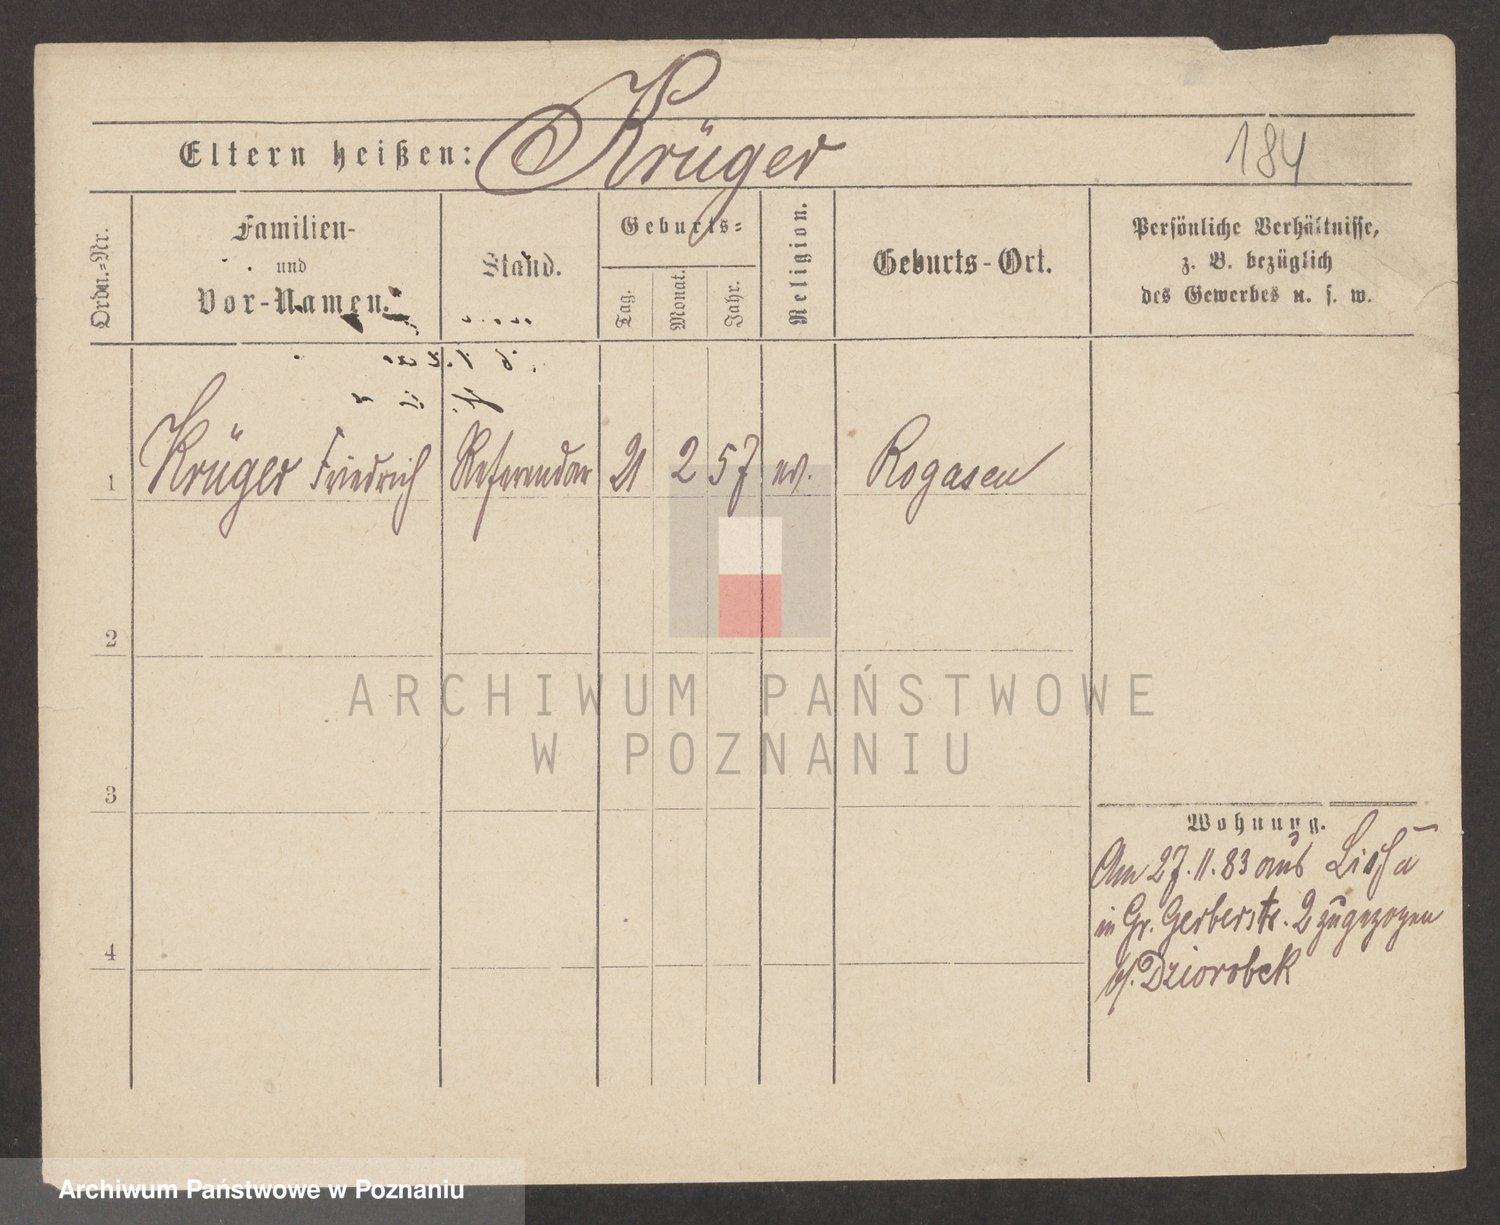 Eltern heißen: Krüger
184
Ordn.=Nr.
Familien-
und
Vor-Namen.
Stand.
Geburts=
Tag.
Monat.
Jahr.
Religion.
Geburts-Ort.
Persönliche Verhältnisse,
z. B. bezüglich
des Gewerbes u. s. w.
1 Krüger Friedrich Referendar 21 2 57 ev. Rogasen
2
3
4
Wohnung.
Am 27.11.83 aus Lissa
in Gr. Gerberstr. 2 zugezogen
b/. Dziorobek
ARCHIWUM PAŃSTWOWE
W POZNANIU
Archiwum Państwowe w Poznaniu